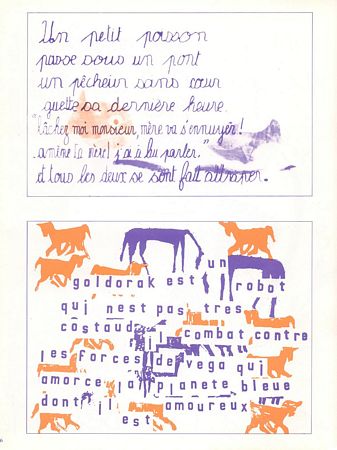 Un petit poisson
passe sous un pont
un pêcheur sans cœur
guette sa dernière heure.
"lâchez moi monsieur, mère va s'ennuyer!
amène la mère j'ai à lui parler."
et tous les deux se sont fait attraper.
un
goldorak est robot
qui nest pas tres
costaud il combat contre
les forces de vega qui
amorce la planete bleue
dont il est amoureux
est
6